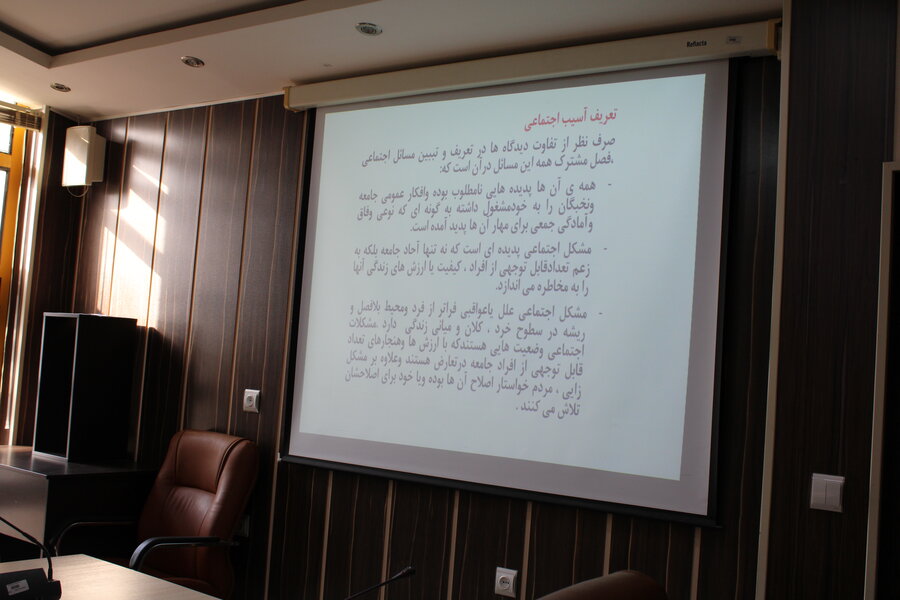 Reflecta
تعریف آسیب اجتماعی
صرف نظر از تفاوت دیدگاه ها در تعریف و تبیین مسائل اجتماعی
،فصل مشترک همه این مسائل درآن است که:
- همه ی آن ها پدیده هایی نامطلوب بوده وافکار عمومی جامعه
ونخبگان را به خودمشغول داشته به گونه ای که نوعی وفاق
وآمادگی جمعی برای مهار آن ها پدید آمده است.
- مشکل اجتماعی پدیده ای است که نه تنها آحاد جامعه بلکه به
زعم تعدادقابل توجهی از افراد ، کیفیت یا ارزش های زندگی آنها
را به مخاطره می اندازد.
- مشکل اجتماعی علل یاعواقبی فراتر از فرد ومحیط بلافصل و
ریشه در سطوح خرد ، کلان و میانی زندگی دارد .مشکلات
اجتماعی وضعیت هایی هستندکه با ارزش ها وهنجارهای تعداد
قابل توجهی از افراد جامعه درتعارض هستند وعلاوه بر مشکل
زایی ، مردم خواستار اصلاح آن ها بوده ویا خود برای اصلاحشان
تلاش می کنند .